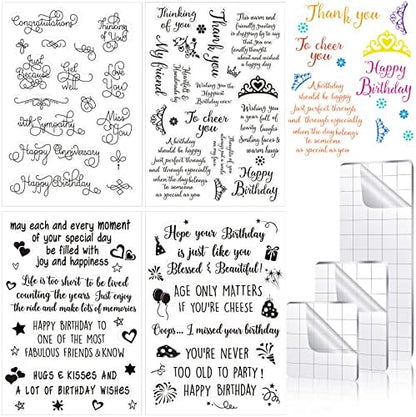 Congratulations
Thinking
of You
Just
Because
Get
well
Love
You
With Sympathy
Miss
You
Happy Anniversary
Happy Birthday
Thinking
of you
Thank
you
My friend
This warm and
friendly greeting is
happening by to say
that you are fondly
thought about
and wished a
happy day
Handmade by
Wishing you the
Happiest
Birthday ever!
To cheer
you
Wishing you a
year full of
laughs
Smiles &
warm hugs
Birthday
should be happy
just perfect through
and through
especially when
the day belongs
to someone
as special as you
Happy
Birthday
Thank you
To cheer
you
Happy
Birthday
Birthday
should be happy
just perfect through
and through especially
when the day belongs
to someone as
special as you
may each and every moment
of your special day
be filled with
joy and happiness
Life is too short to be lived
counting the years Just enjoy
the ride and make lots of memories
HAPPY BIRTHDAY TO
ONE OF THE MOST
FABULOUS FRIENDS & KNOW
HUGS & KISSES AND
A LOT OF BIRTHDAY WISHES
Hope your Birthday
is just like you
Blessed & Beautiful!
AGE ONLY MATTERS
IF YOU'RE CHEESE
Ooops... I missed your birthday
YOU'RE NEVER
TOO OLD TO PARTY!
HAPPY BIRTHDAY